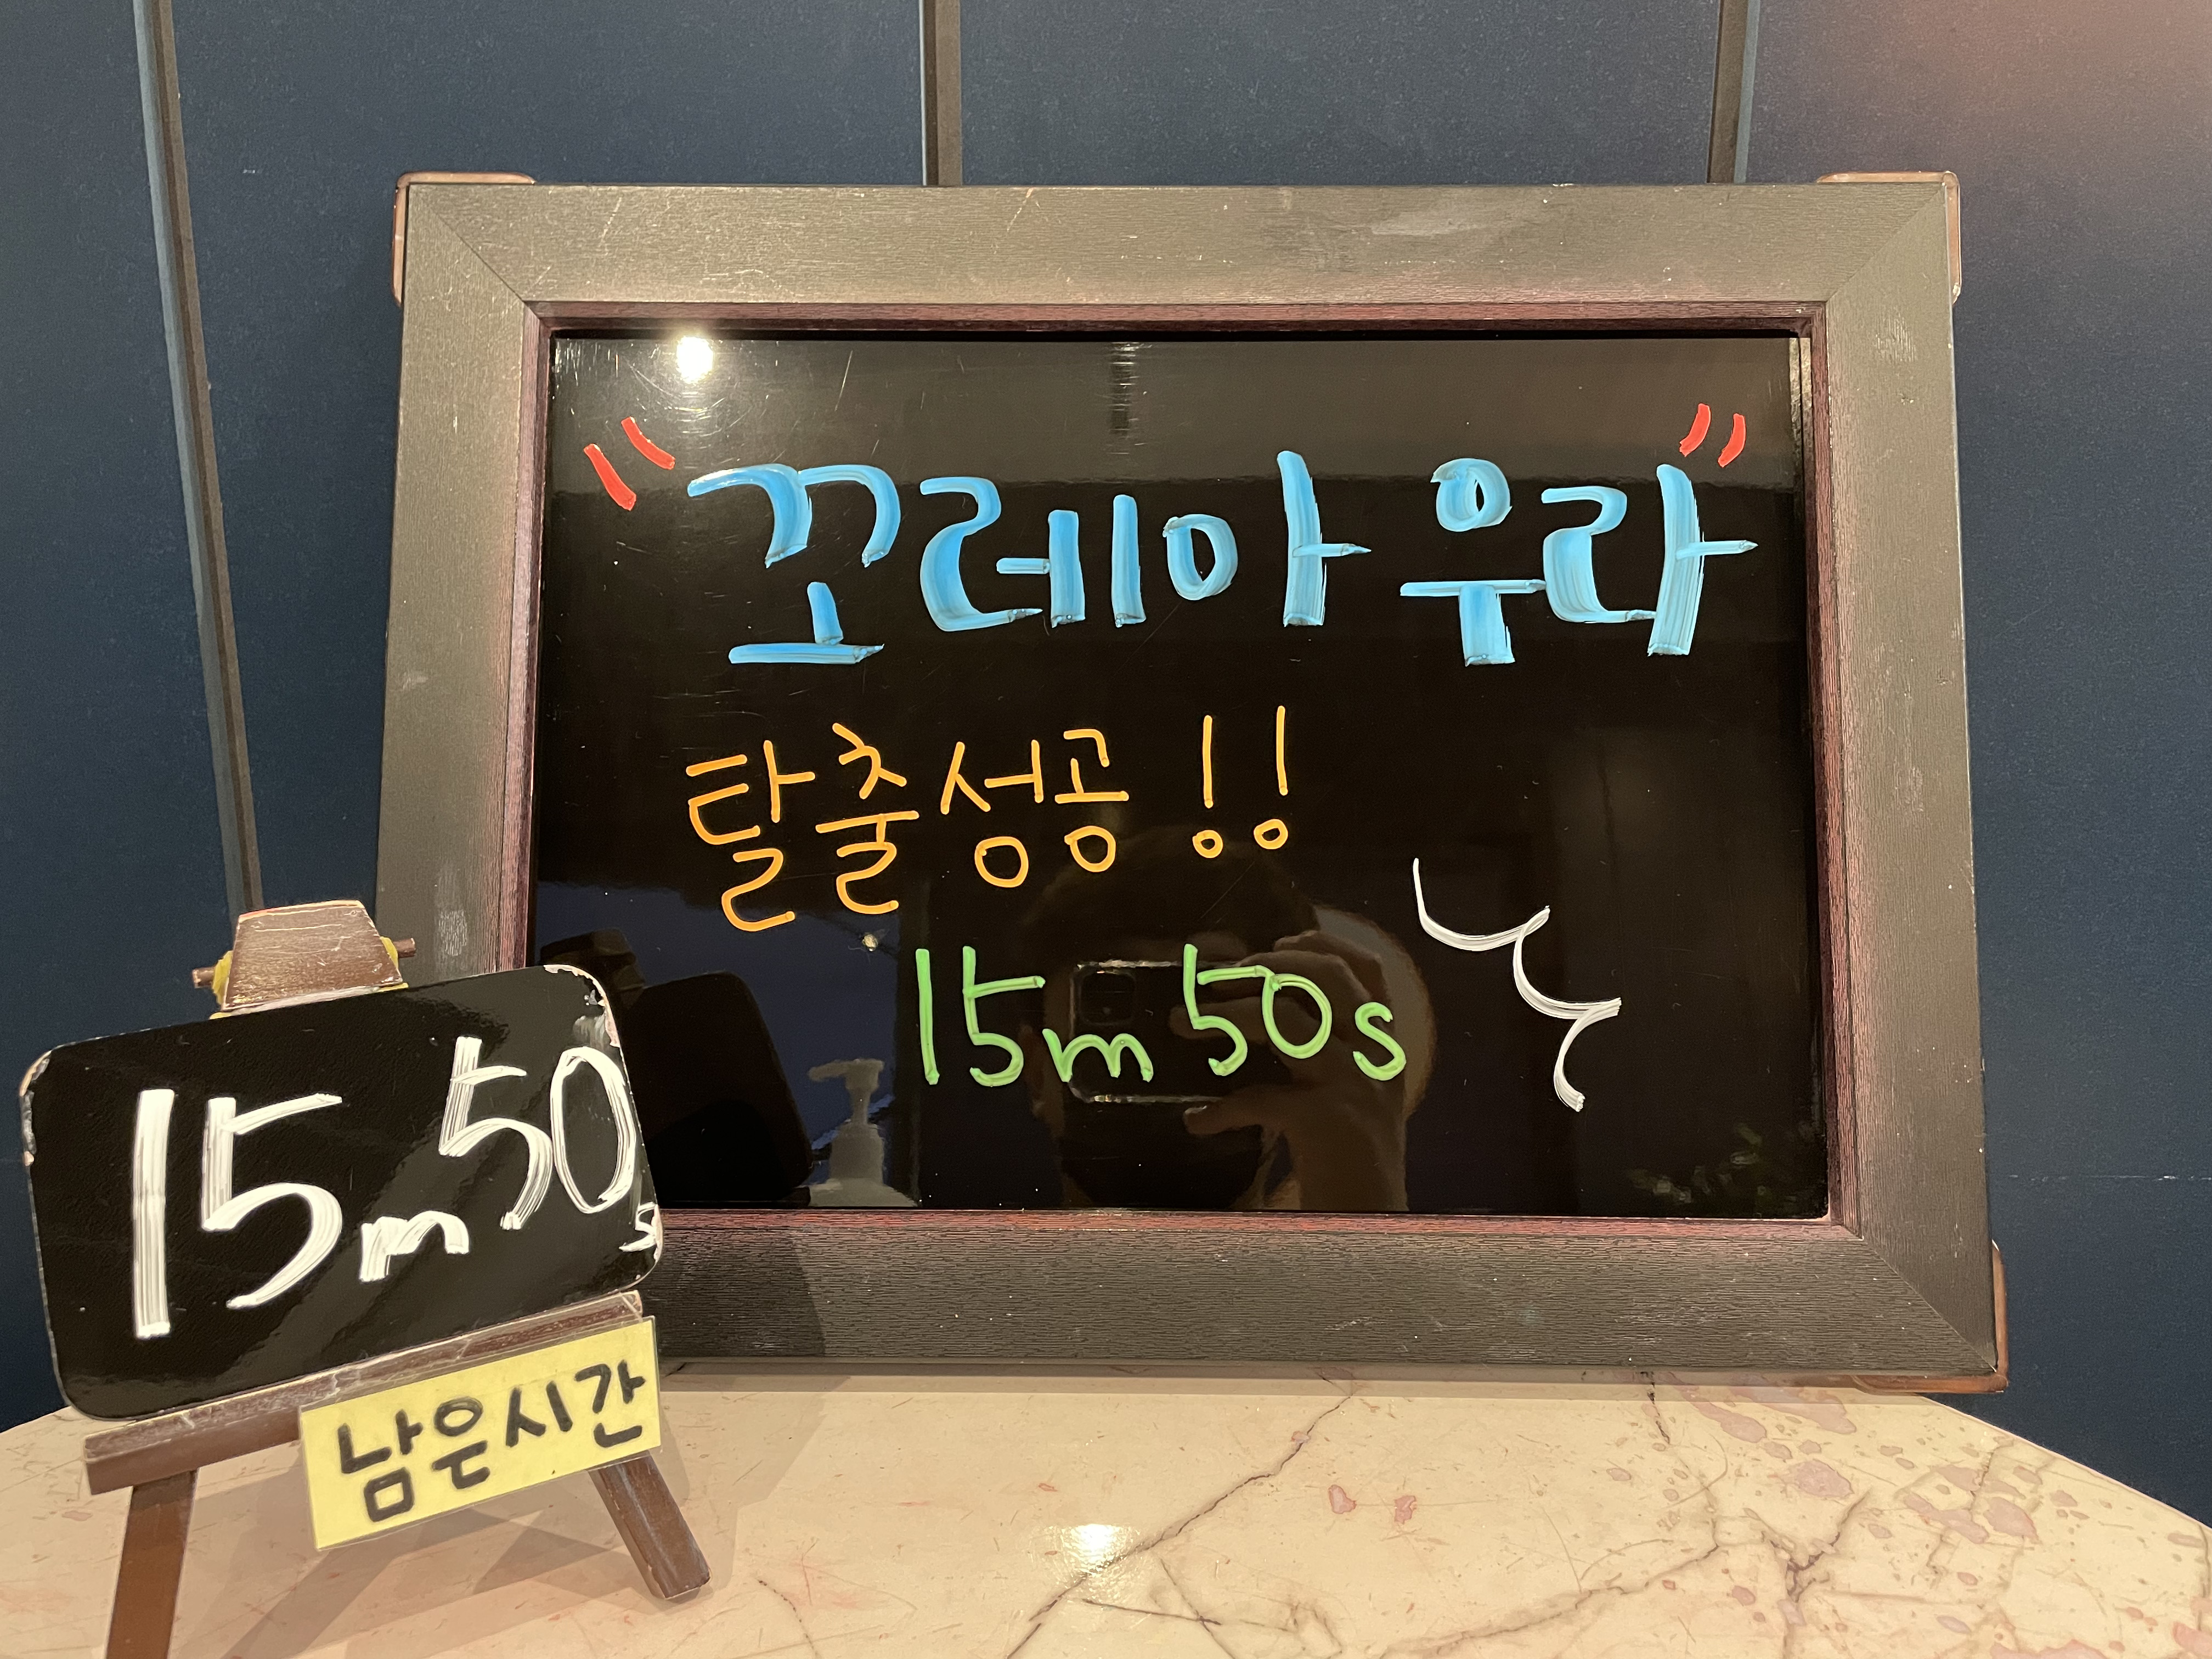 "꼬레아 우라"
탈출성공!!
15m 50s
15m 50s
남은시간